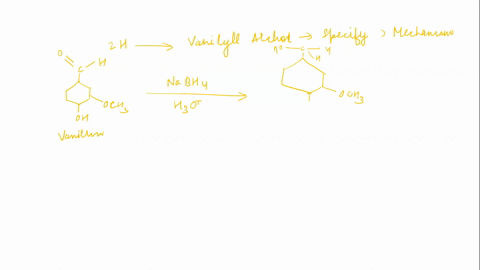 2H → Vanilyll Alchol → Specify > Mechanism
O
C
H
OCH3
OH
Vanillin
NaBH4
H3O+
C
H
OCH3